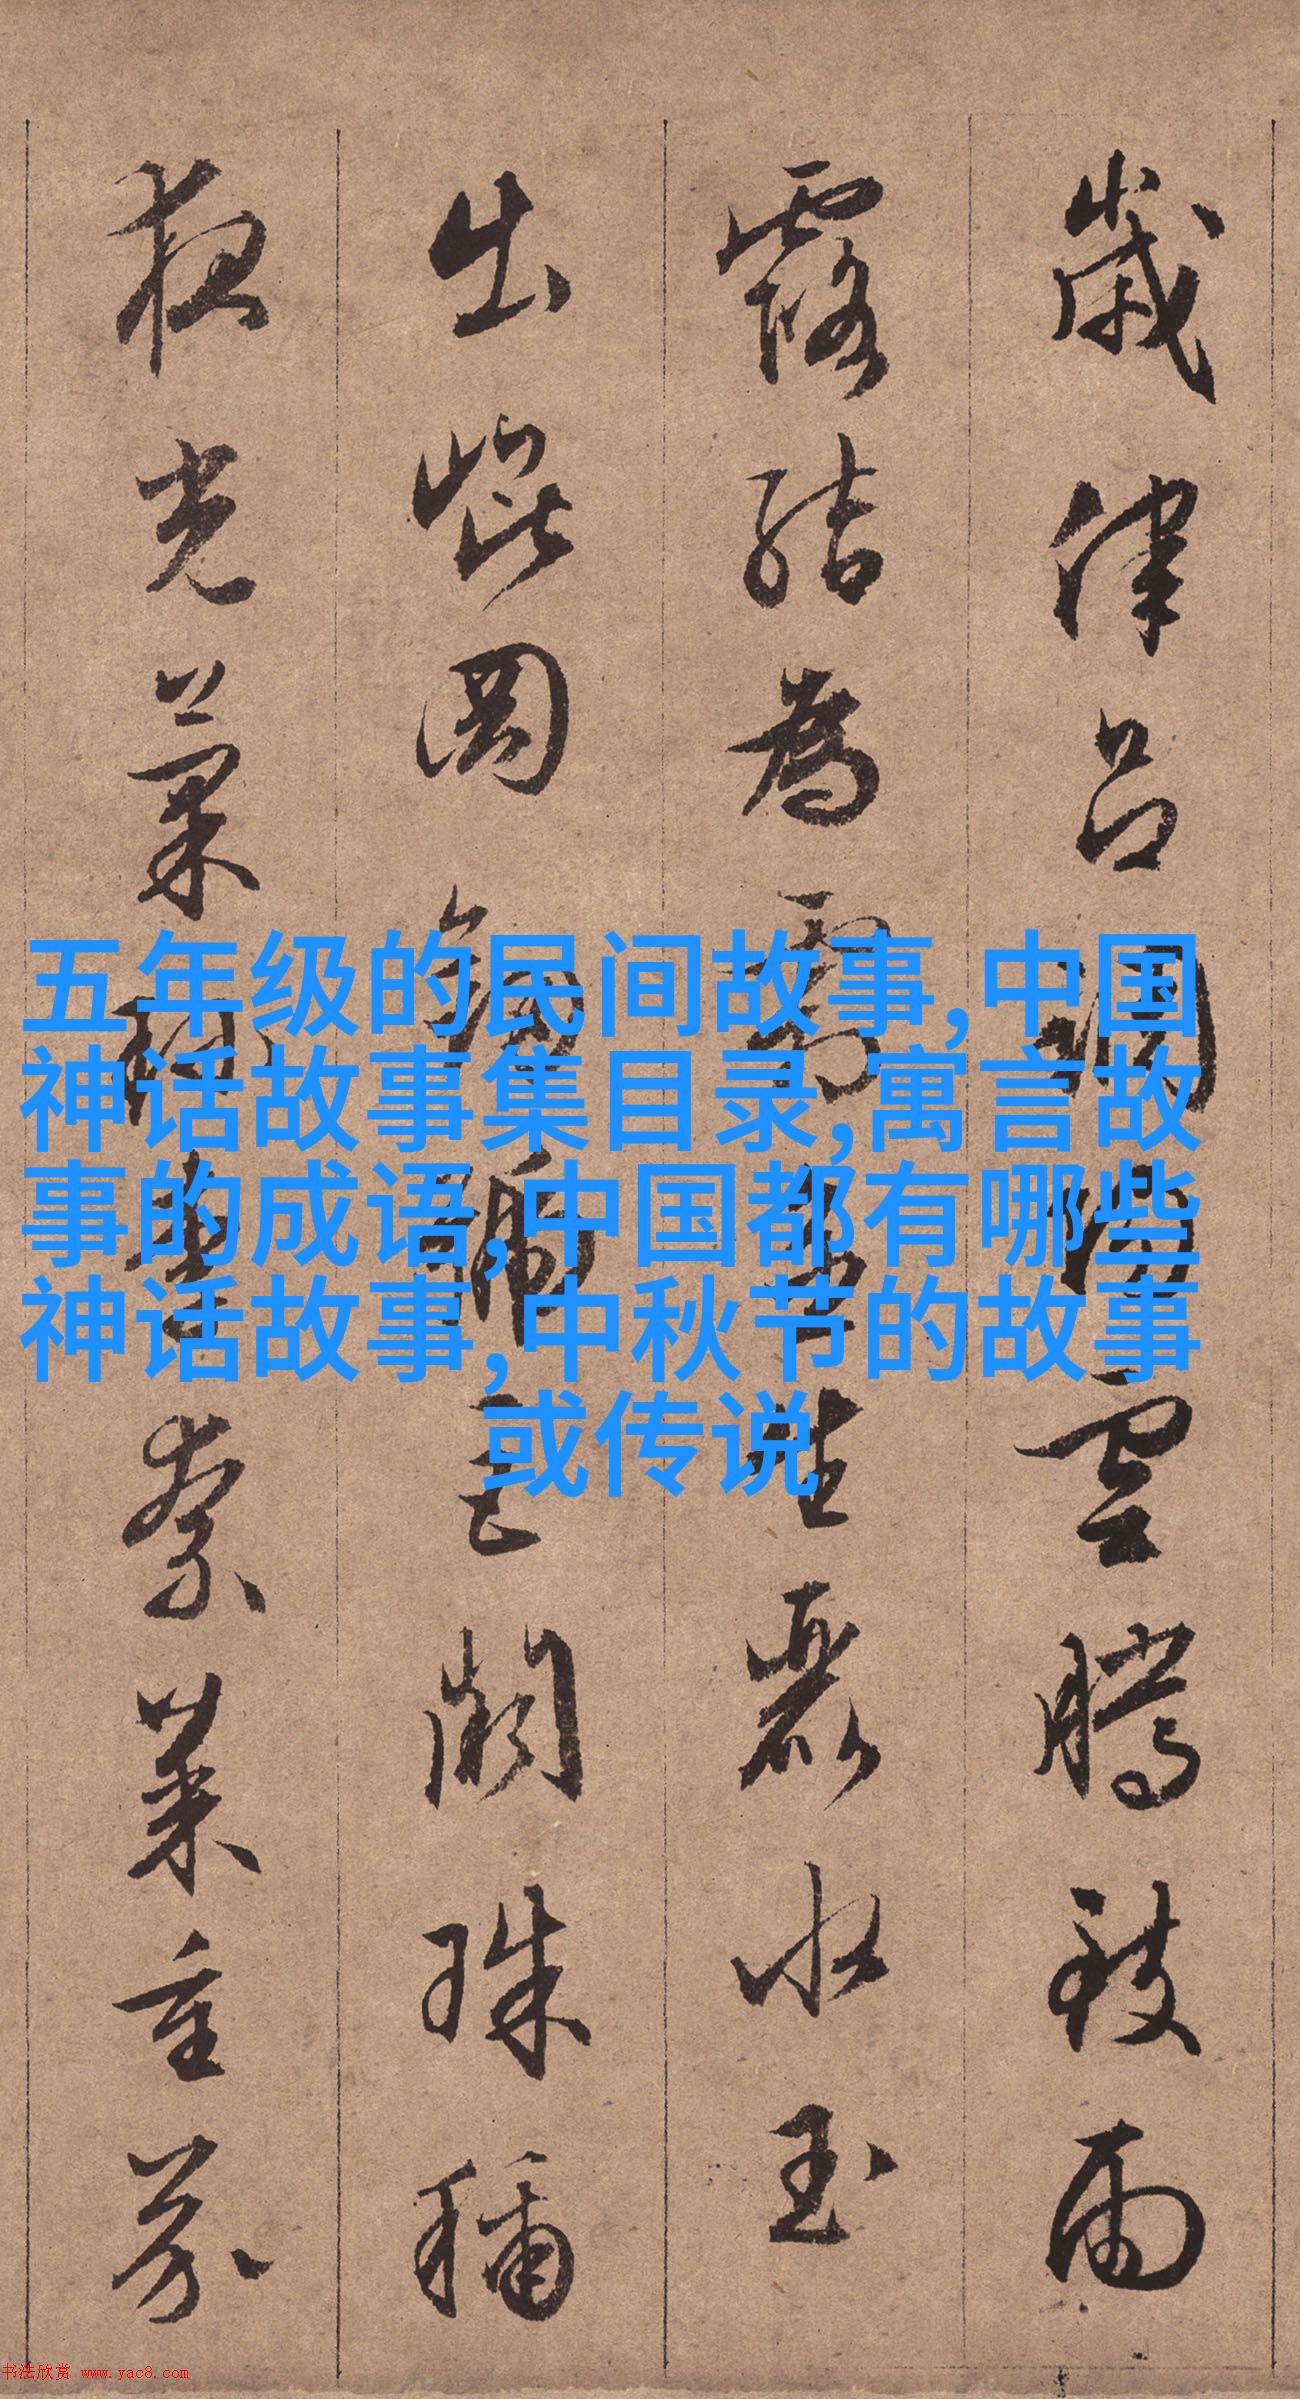 歲律呂調陽雲騰致雨
露結為霜金生麗水玉
出崐岡劍號巨闕珠稱
夜光菓珍李柰菜重芥
五年级的民间故事,中国
神话故事集目录,寓言故
事的成语,中国都有哪些
神话故事,中秋节的故事
或传说
书法欣赏 www.yac8.com